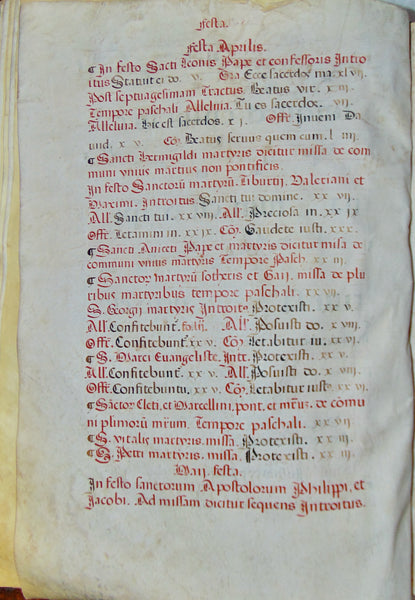 festa.
festa Aprilis.
¶ In festo Sacti Leonis Pape et confessoris Intro
itus Statuit ei do. v. Gra Ecce sacerdos ma. xlvij.
Post septuagesimam Tractus Beatus vir. x iij.
Tempore paschali Alleluia. Tu es sacerdos. vij.
Alleluia. hic est sacerdos. x j. Offe. Inveni Da
uid. x v. Co. Beatus seruus quem cum. l iiij.
¶ Sancti hermigildi martyris dicitur missa de com
muni vnius martius non pontificis.
In festo Sanctorū martyrū. Tiburtij. Valeriani et
Maximi. Introitus Sancti tui domine. xx vij.
All. Sancti tui. xx viij. All. Preciosa in. xx ix
Offe. Letamini in. xx ix. Co. Gaudete iusti. xxx.
¶ Sancti Aniceti Pape et martyris dicitur misa de
communi vnius martyris Tempore Pasch. xx iij.
¶ Sanctor martyrū sotheris et Gaij. missa de plu
ribus martyribus tempore paschali. xx vij.
S. Georgij martyris Introitꝰ Protexisti. xx v.
All. Confitebunt. All. Posuisti do. x viij.
Offe. Confitebunt. xx v. Co. Letabitur iu. xx vi.
¶ S. Marci Euangeliste. Intr. Protexisti. xx v.
All. Confitebuntur. xx v. All. Posuisti do. x viij.
Offe. Confitebuntu. xx v. Co. Letabitur iustꝰ xx vi.
¶ Sāctor Cleti, et Marcellini, pont. et mr̄us. de cōmu
ni plurimorū mr̄um. Tempore paschali. xx vij.
¶ S. vitalis martyris. missa. Protexisti. xx iij.
¶ S. Petri martyris. missa. Protexisti. xx iij.
Maij. festa.
In festo sanctorum Apostolorum Philippi, et
Jacobi. Ad missam dicitur sequens Introitus.